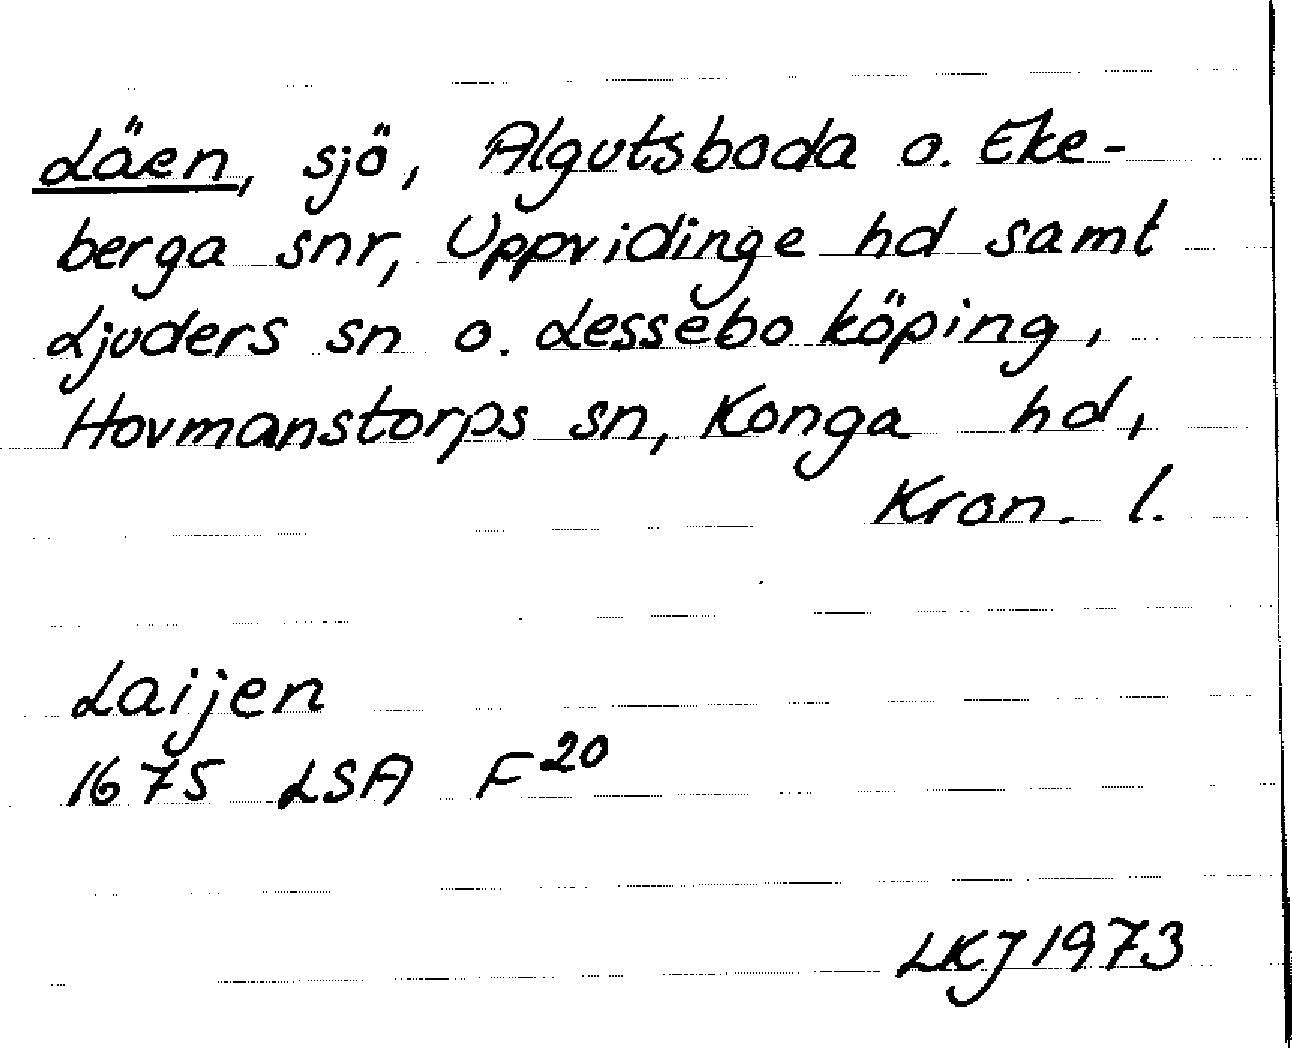 Läen, sjö, Algutsboda o. Eke-
berga snr, Uppvidinge hd samt
Ljuders sn o. Lessebo köping,
Hovmanstorps sn, Konga hd,
Kron. l.
Laijen
1675 LSA F²⁰
LKJ 1973